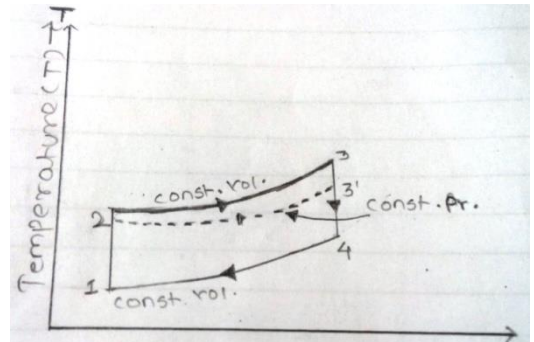 T
Temperature (T)
const. vol.
3
3'
2
const. pr.
4
1
const. vol.